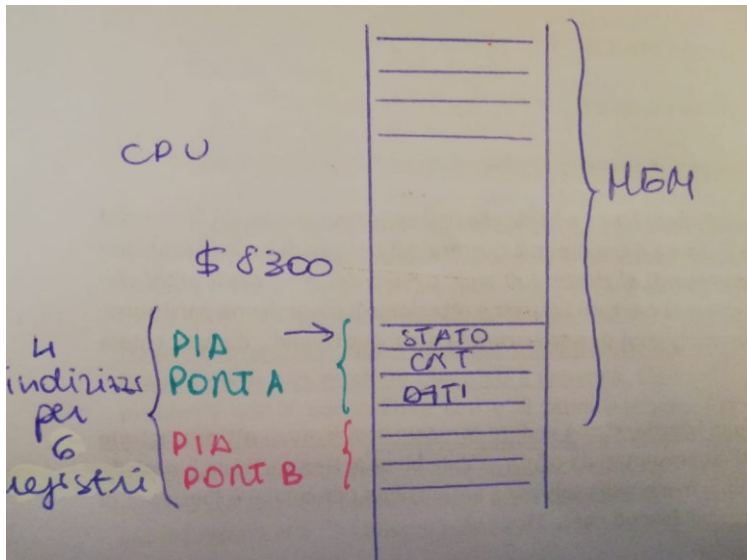 CPU
MEM
$ 8300
4
indirizzi
per
6
registri
PIA
PORT A
PIA
PORT B
STATO
CNT
DATI